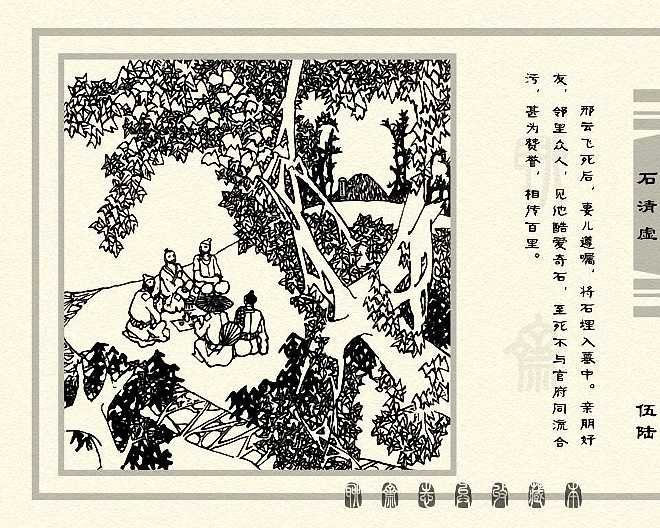 邢云飞死后，妻儿遵嘱，将石埋入墓中。亲朋好
友，邻里众人，见他酷爱奇石，至死不与官府同流合
污，甚为赞誉，相传百里。
石清虚
伍陆